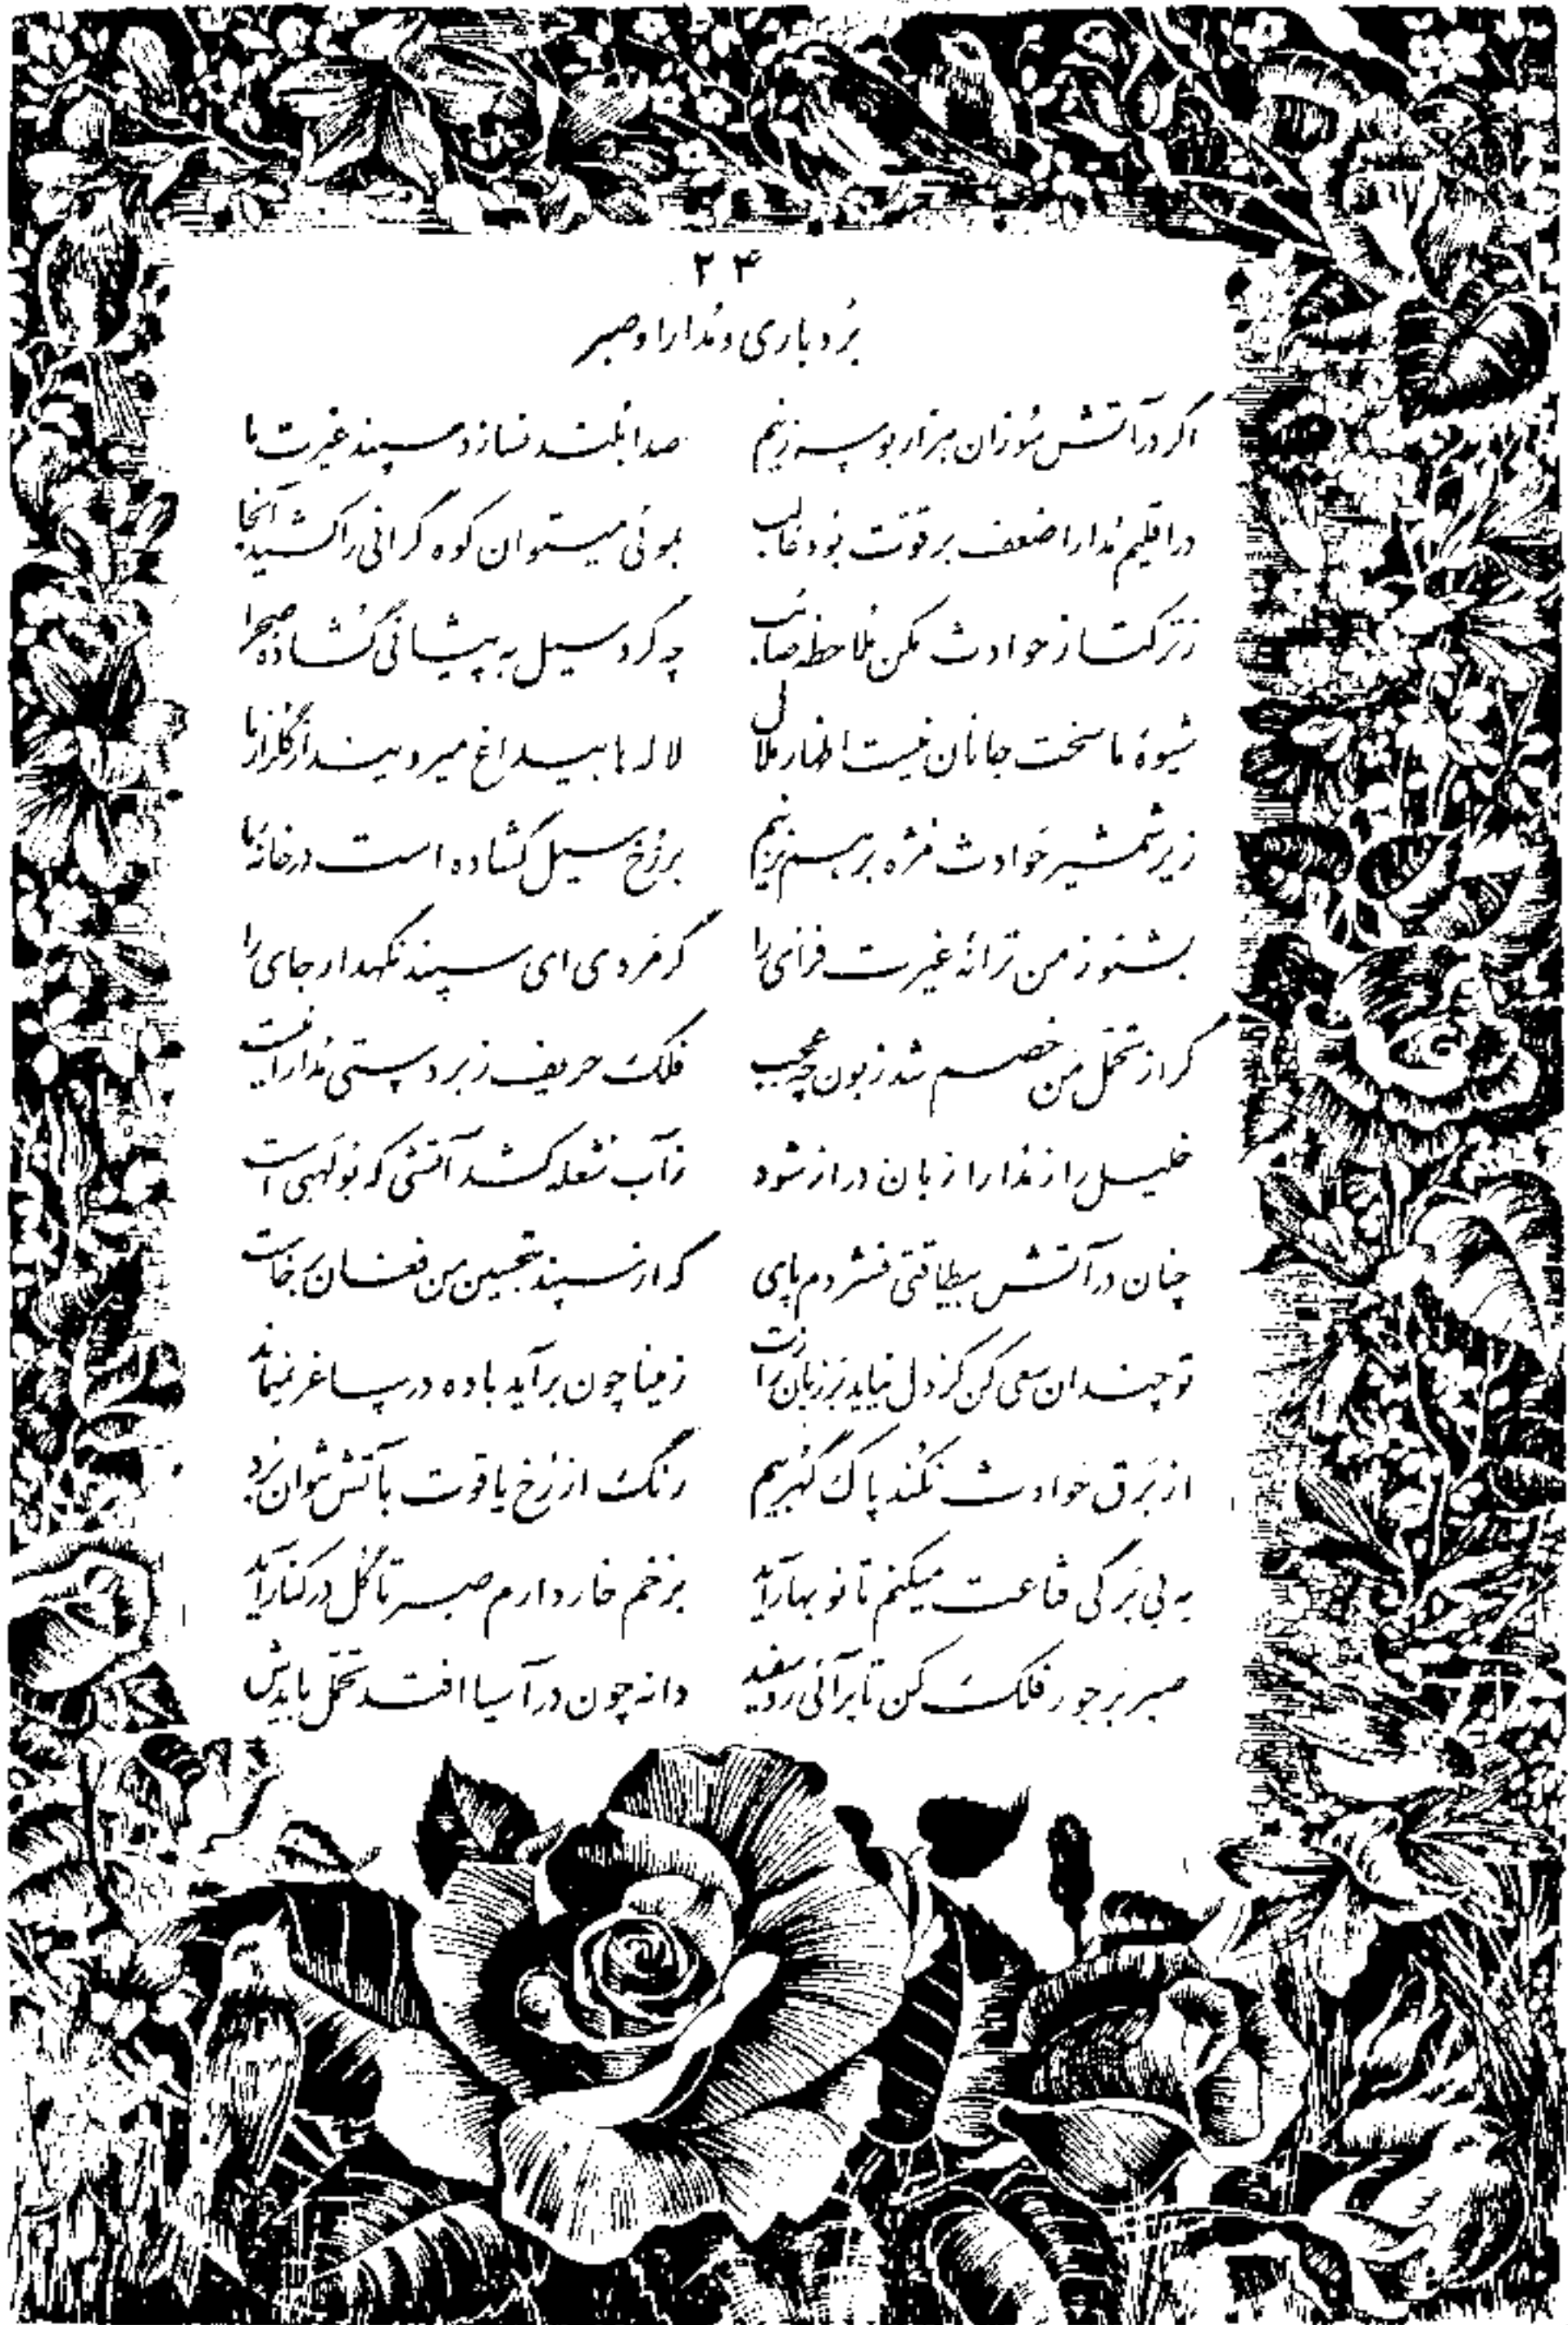 ۲۴
بُردباری و مُدارا و صبر
اگر در آتش سُوزان هزار بوسه زنیم صدا بُلند نسازد سپند غیرت ما
در اقلیم مُدارا ضعف بر قوّت بُود غالب بموئی میتوان کوه گرانی را کشید آنجا
ز ترکتاز حوادث مکن مُلاحظه صائب چه کرد سیل به پیشانی گُشادهٔ صحرا
شیوهٔ ما سخت جانان نیست اظهار ملال لاله ها بیداغ میرویند از گلزار ما
زیر شمشیر حَوادث مژه بر هم نزنیم بر رُخ سیل گشاده است در خانهٔ ما
بشنو ز من ترانهٔ غیرت فزای را گر مَردی ای سپند نگهدار جای را
گر از تحمّل من خصم شد زبون چه عجب فلک حریف زبردستی مُدارا نیست
خسیس را ز مُدارا زبان دراز شود ز آب شعله کشد آتشی که بُولَهبی است
چنان در آتش بیطاقتی فشردم پای که از سپند بتحسین من فغان برخاست
تو چندان سعی کن کز دل نیاید بَر زبان رازت ز مینا چون برآید باده در ساغر نمیماند
از بَرق حَوادث نکُند پاک گُهر بیم رنگ از رُخ یاقوت بآتش نتوان بُرد
به بی بَرگی قناعت میکنم تا نو بهار آید بزخم خار دارم صبر تا گُل در کنار آید
صبر بَر جور فلک کن تا بَر آئی رو سفید دانه چون در آسیا افتد تحمّل بایدش